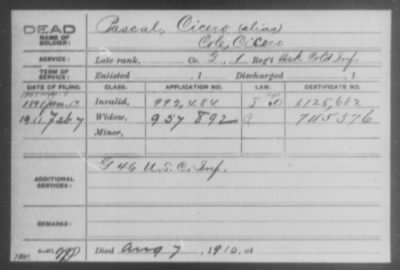 DEAD
NAME OF SOLDIER: Pascal, Cicero (alias)
Cole, Cicero
SERVICE: Late rank, Co. G, 1 Reg't Ark Cold Inf.
TERM OF SERVICE: Enlisted , 1 Discharged , 1
DATE OF FILING. CLASS. APPLICATION NO. LAW. CERTIFICATE NO.
1891 Jan 13 Invalid, 992,484 1125,682
1911 Feb 7 Widow, 957892 745576
Minor,
ADDITIONAL SERVICES: G 46 U.S.C. Inf.
REMARKS:
Died Aug 7, 1910, at